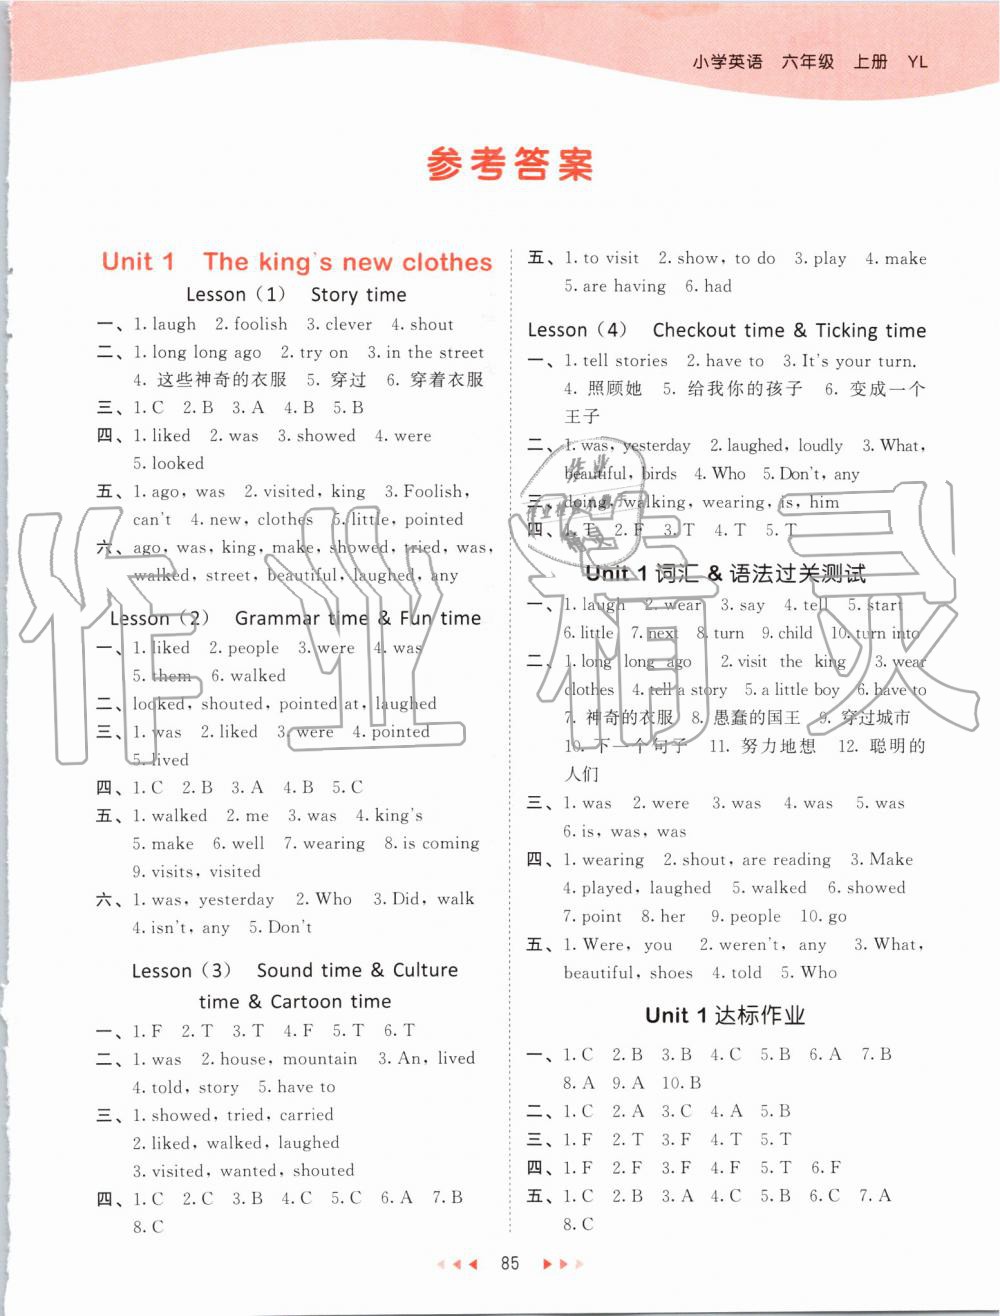 小学英语 六年级 上册 YL
参考答案
Unit 1 The king's new clothes
Lesson (1) Story time
一、1. laugh 2. foolish 3. clever 4. shout
二、1. long long ago 2. try on 3. in the street
4. 这些神奇的衣服 5. 穿过 6. 穿着衣服
三、1. C 2. B 3. A 4. B 5. B
四、1. liked 2. was 3. showed 4. were
5. looked
五、1. ago, was 2. visited, king 3. Foolish,
can't 4. new, clothes 5. little, pointed
六、ago, was, king, make, showed, tried, was,
walked, street, beautiful, laughed, any
Lesson (2) Grammar time & Fun time
一、1. liked 2. people 3. were 4. was
5. them 6. walked
二、looked, shouted, pointed at, laughed
三、1. was 2. liked 3. were 4. pointed
5. lived
四、1. C 2. B 3. A 4. B 5. C
五、1. walked 2. me 3. was 4. king's
5. make 6. well 7. wearing 8. is coming
9. visits, visited
六、1. was, yesterday 2. Who 3. Did, walk
4. isn't, any 5. Don't
Lesson (3) Sound time & Culture
time & Cartoon time
一、1. F 2. T 3. T 4. F 5. T 6. T
二、1. was 2. house, mountain 3. An, lived
4. told, story 5. have to
三、1. showed, tried, carried
2. liked, walked, laughed
3. visited, wanted, shouted
四、1. C 2. C 3. B 4. C 5. C 6. A 7. B
8. C
五、1. to visit 2. show, to do 3. play 4. make
5. are having 6. had
Lesson (4) Checkout time & Ticking time
一、1. tell stories 2. have to 3. It's your turn.
4. 照顾她 5. 给我你的孩子 6. 变成一个
王子
二、1. was, yesterday 2. laughed, loudly 3. What,
beautiful, birds 4. Who 5. Don't, any
三、doing, walking, wearing, is, him
四、1. T 2. F 3. T 4. T 5. T
Unit 1 词汇 & 语法过关测试
一、1. laugh 2. wear 3. say 4. tell 5. start
6. little 7. next 8. turn 9. child 10. turn into
二、1. long long ago 2. visit the king 3. wear
clothes 4. tell a story 5. a little boy 6. have to
7. 神奇的衣服 8. 愚蠢的国王 9. 穿过城市
10. 下一个句子 11. 努力地想 12. 聪明的
人们
三、1. was 2. were 3. was 4. was 5. was
6. is, was, was
四、1. wearing 2. shout, are reading 3. Make
4. played, laughed 5. walked 6. showed
7. point 8. her 9. people 10. go
五、1. Were, you 2. weren't, any 3. What,
beautiful, shoes 4. told 5. Who
Unit 1 达标作业
一、1. C 2. B 3. B 4. C 5. B 6. A 7. B
8. A 9. A 10. B
二、1. C 2. A 3. C 4. A 5. B
三、1. F 2. T 3. F 4. T 5. T
四、1. F 2. F 3. F 4. F 5. T 6. F
五、1. C 2. B 3. A 4. C 5. B 6. C 7. A
8. C
85
作业精灵